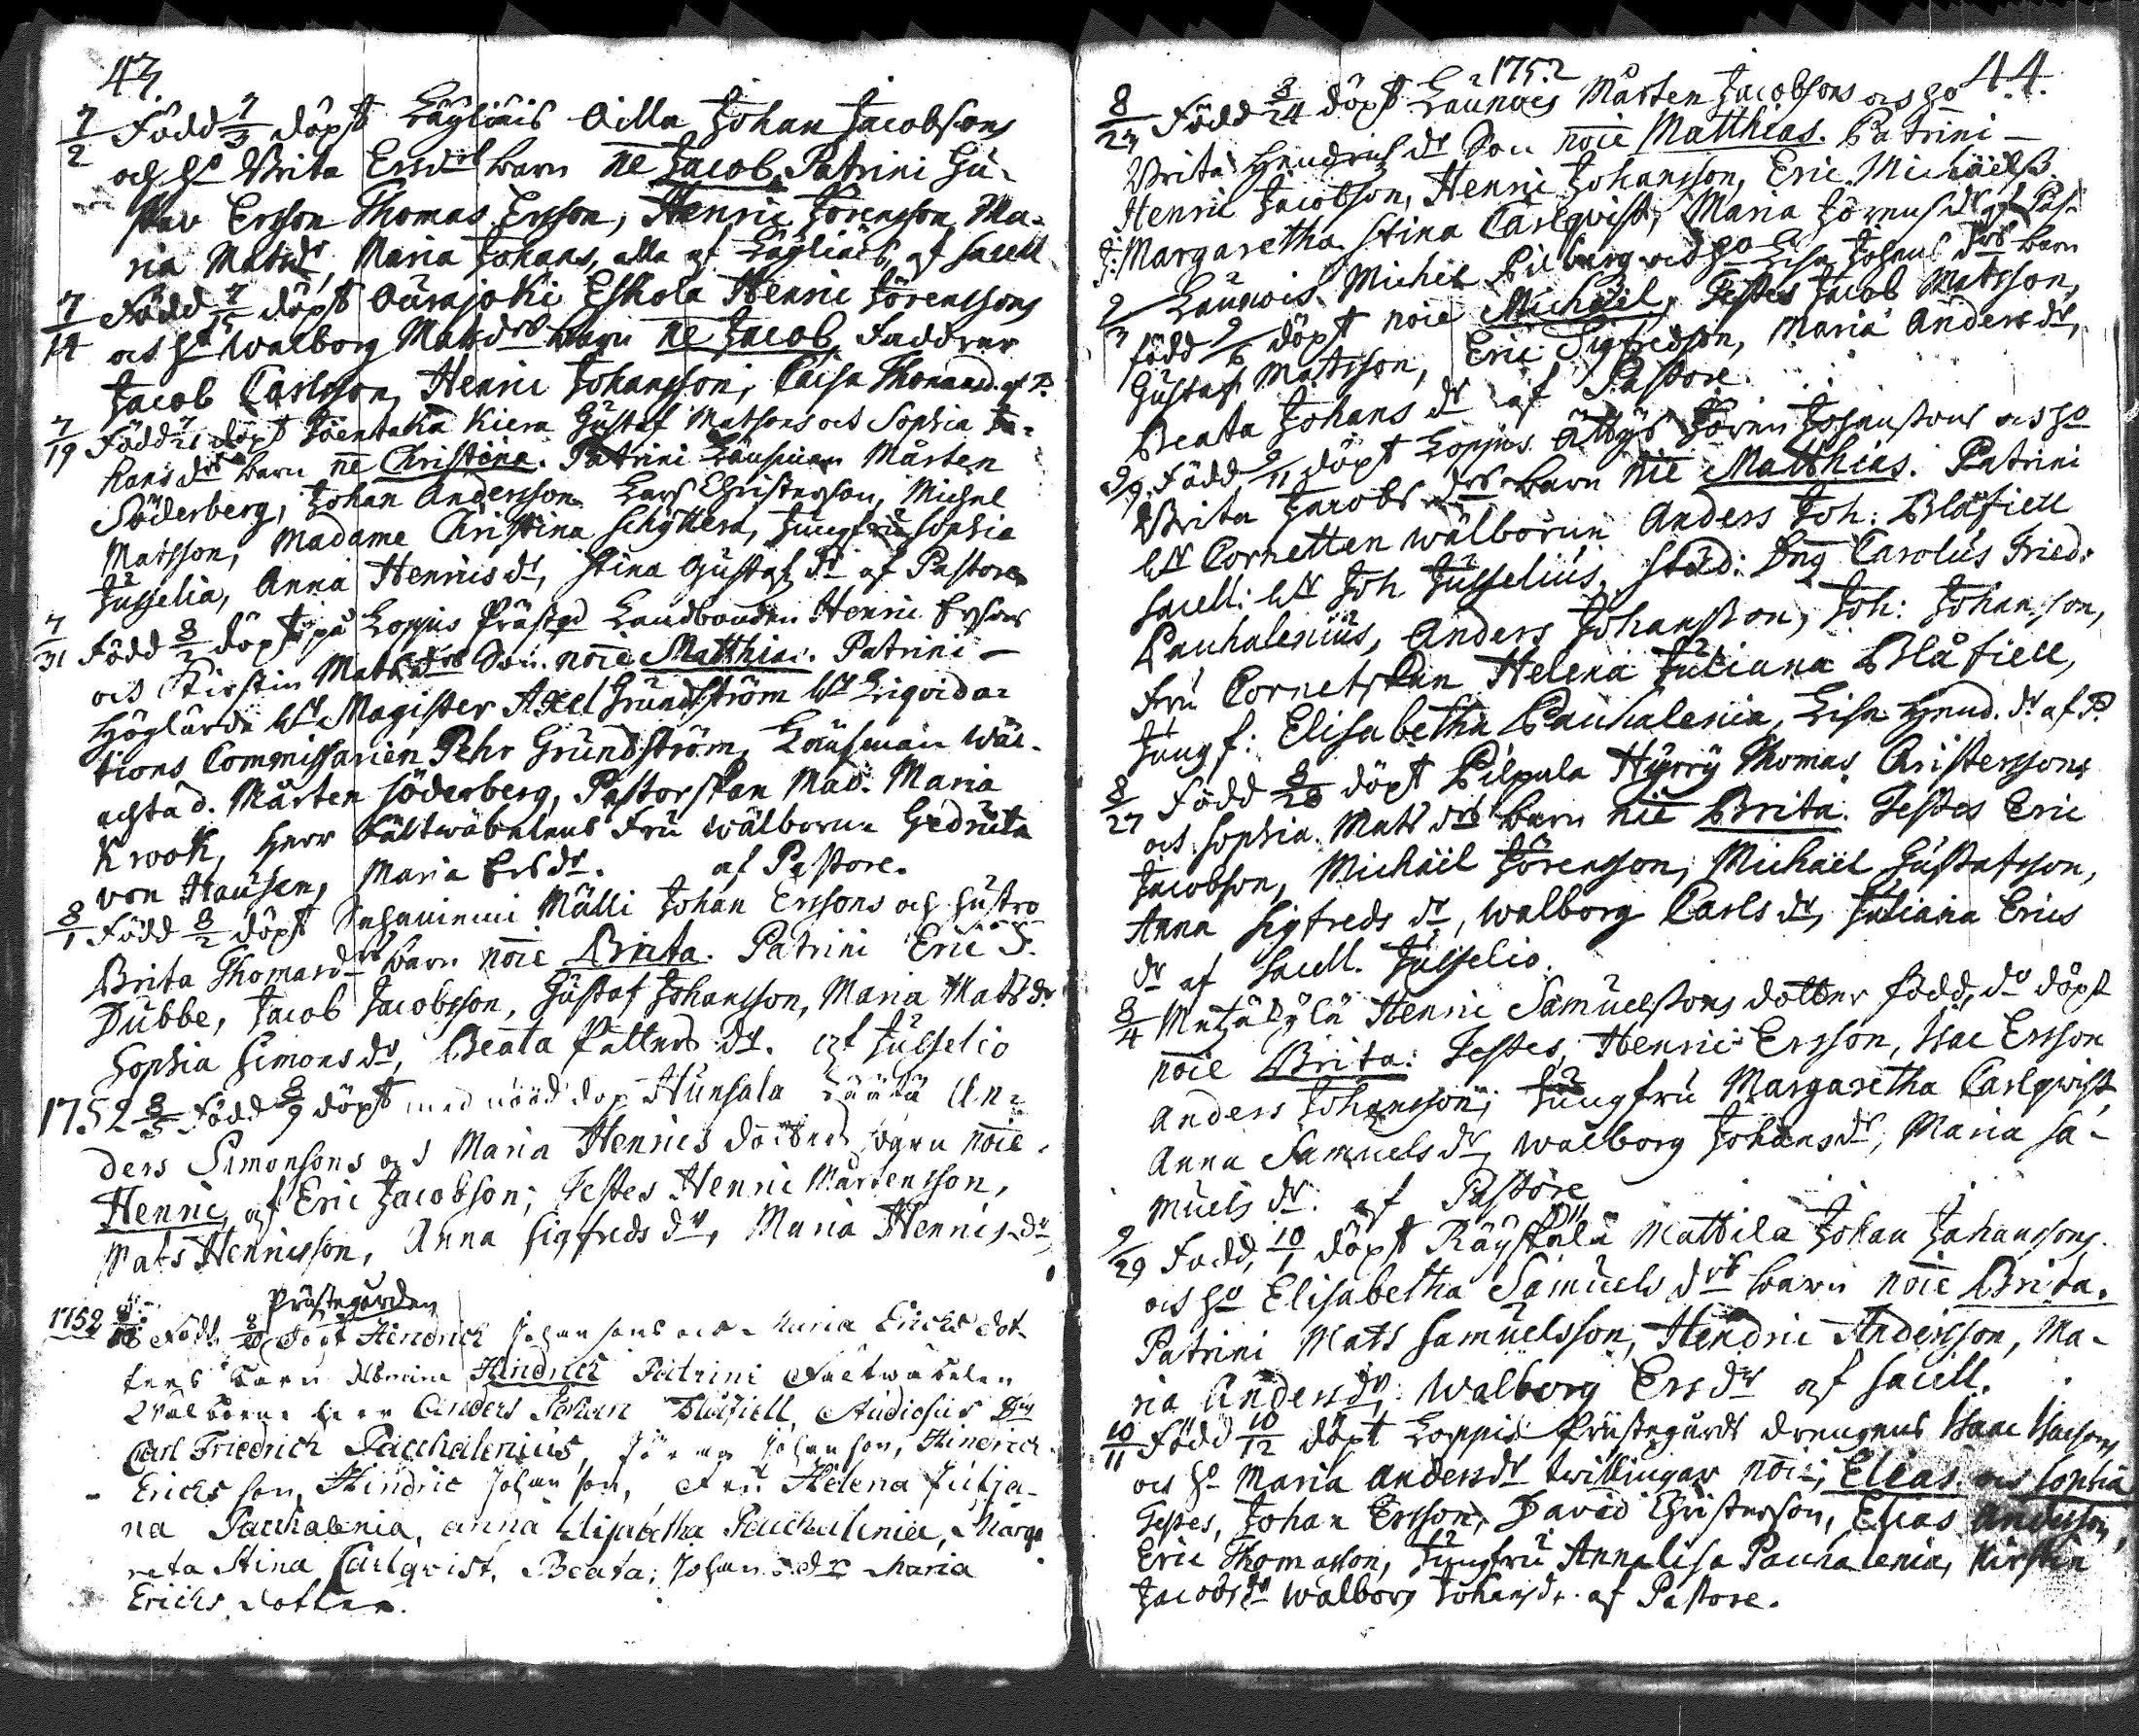 43.
7/2 Född 7/3 döpt Läyliäis Äilla Johan Jacobsons
och ho Brita Ersdrs barn ne Jacob, Patrini Gu-
stav Ersson Thomas Ersson, Henric Jörensson Ma-
ria Matsdr, Maria Johans, alla af Läyliäis, af Sacell
7/14 Född 7/15 döpt Aurajoki Eskola Henric Jörenssons
och ho Walborg Matsdrs barn ne Jacob, Faddrar
Jacob Carlsson, Henric Johansson, Caisa Thomasd. af P.
7/19 Född 7/21 döpt Köentaka Kiera Gustaf Matssons och Sophia Jo-
hans drs barn ne Christina. Patrini Länsman Mårten
Söderberg, Johan Andersson Lars Christersson, Michel
Matsson, Madame Christina Schyttera, Jungfru Sophia
Jusselia, Anna Henrics dr, Stina Gustaf dr af Pastore
7/31 Född 8/2 döpt på Loppis Prästgd Landbonden Henric Ersons
och Kirstin Mats drs Son. noie Matthias. Patrini —
Höglärde Hr Magister Axel Grundström Hr Liqvida-
tions Commissarien Pehr Grundström, Länsman Wäl-
achtad. Mårten Söderberg, Pastorskan Mad. Maria
Krook, Herr Fältwäbelens Fru Wälborna Gedruta
von Hausen, Maria Ersdr. af Pastore.
8/1 Född 8/2 döpt Sajaniemi Mälli Johan Erssons och hustro
Brita Thomasdrs barn noie Brita. Patrini Eric J.
Dubbe, Jacob Jacobsson, Gustaf Johansson, Maria Mats dr
Sophia Simonsdr, Beata Petters dr. af Jusselio
1752 8/5 Född 8/9 döpt med nöd dop Hunsala Räätä An-
ders Simonsons och Maria Henrics dotters barn noie
Henric, af Eric Jacobson; Testes Henric Mårtensson,
Mats Henricsson, Anna Sigfreds dr, Maria Henrics dr
Prästegården
1752 8/18 Född 8/20 döpt Hendrich Johansons och Maria Erichs dot-
ters barn Nomine Hindrich Patrini Fältwäbelen
Wälborne Herr Anders Johan Blåfiell, Studiosus Dn
Carl Friedrich Pacchalenius, Jören Johanson, Hindrich
Erichsson, Hindric Johanson, Fru Helena Julja-
na Pacchalenia, Anna Elisabetha Pacchalenia, Marga
reta Stina Carlqvist, Beata Johans dr Maria
Erichs dotter.
1752 44.
8/23 Född 8/24 döpt Launois Mårten Jacobsons och ho
Brita Hendrich dr Son noie Matthias. Patrini —
Henric Jacobson, Henric Johansson, Eric Michaëlss.
J: Margaretha Stina Carlqvist, Maria Jörensdr af Past
9/3 Launois Michel Pilberg och ho Lisa Johans drs barn
född 9/6 döpt noie Michaël, Testes Jacob Matsson,
Gustaf Matsson, Eric Sigfredson, Maria Anders dr,
Beata Johans dr af Pastore.
9/9 Född 9/11 döpt Loppis Ällöys Jören Johanssons och ho
Brita Jacobs drs barn nie Matthias. Patrini
Hr Cornetten Wälborne Anders Joh: Blåfiell
Sacell: Hr Joh Jusselius, Stud: Dns Carolus Fried:
Pauhalenius, Anders Johansson, Joh: Johansson,
Fru Cornetskan Helena Juliana Blåfiell,
Jungf: Elisabetha Pauhalenia, Lisa Hend. dr af P.
8/27 Född 8/28 döpt Pilpala Hyrry Thomas Christerssons
och Sophia Mats drs barn nie Brita. Testes Eric
Jacobson, Michäel Jörensson, Michäel Gustafsson,
Anna Sigfreds dr, Walborg Carls dr, Juliana Erics
dr af Sacell. Jusselio.
8/4 Metäkylä Henric Samuelssons dotter född, do döpt
noie Brita. Testes, Henric Ersson, Isac Ersson
Anders Johansson, Jungfru Margaretha Carlqvist,
Anna Samuels dr, Walborg Johansdr, Maria Sa-
muels dr. af Pastore
9/29 Född, 10/1 döpt Räyskälä Mattila Johan Johanssons
och ho Elisabetha Samuels drs barn noie Brita.
Patrini Mats Samuelsson, Hendric Andersson, Ma-
ria Andersdr. Walborg Ersdr af Sacell.
10/11 Född 10/12 döpt Loppis Prästegårds drengens Isaac Isacsons
och ho Maria Andersdr twillingar noie; Elias och Sophia
Testes, Johan Ersson, David Christersson, Elias Andersson,
Eric Thomasson, Jungfru Annalisa Pauhalenia, Kirstin
Jacobsdr Walborg Johansdr. af Pastore.